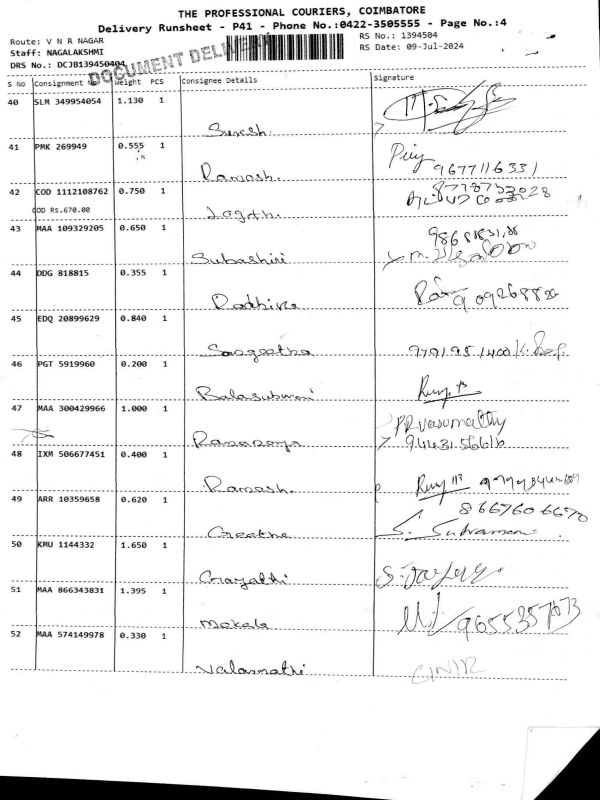 THE PROFESSIONAL COURIERS, COIMBATORE
Delivery Runsheet - P41 - Phone No.:0422-3505555 - Page No.:4
Route: V N R NAGAR
RS No.: 1394504
Staff: NAGALAKSHMI
RS Date: 09-Jul-2024
DRS No.: DCJB139450404
DOCUMENT DELIVERY
S No Consignment No Weight PCS Consignee Details Signature
40 SLM 349954054 1.130 1
Suresh.
41 PMK 269949 0.555 1
Ramash.
9677116331
42 COD 1112108762 0.750 1
COD Rs.670.00
43 MAA 109329205 0.650 1
Subashini
44 DDG 818815 0.355 1
Radhika
45 EDQ 20899629 0.840 1
Sangeetha
46 PGT 5919960 0.200 1
47 MAA 300429966 1.000 1
PR Vasumathy
48 IXM 506677451 0.400 1
Ramash.
49 ARR 10359658 0.620 1
8667606670
Geetha
50 KMU 1144332 1.650 1
Gayathi
51 MAA 866343831 1.395 1
mekala
52 MAA 574149978 0.330 1
Valarmathi